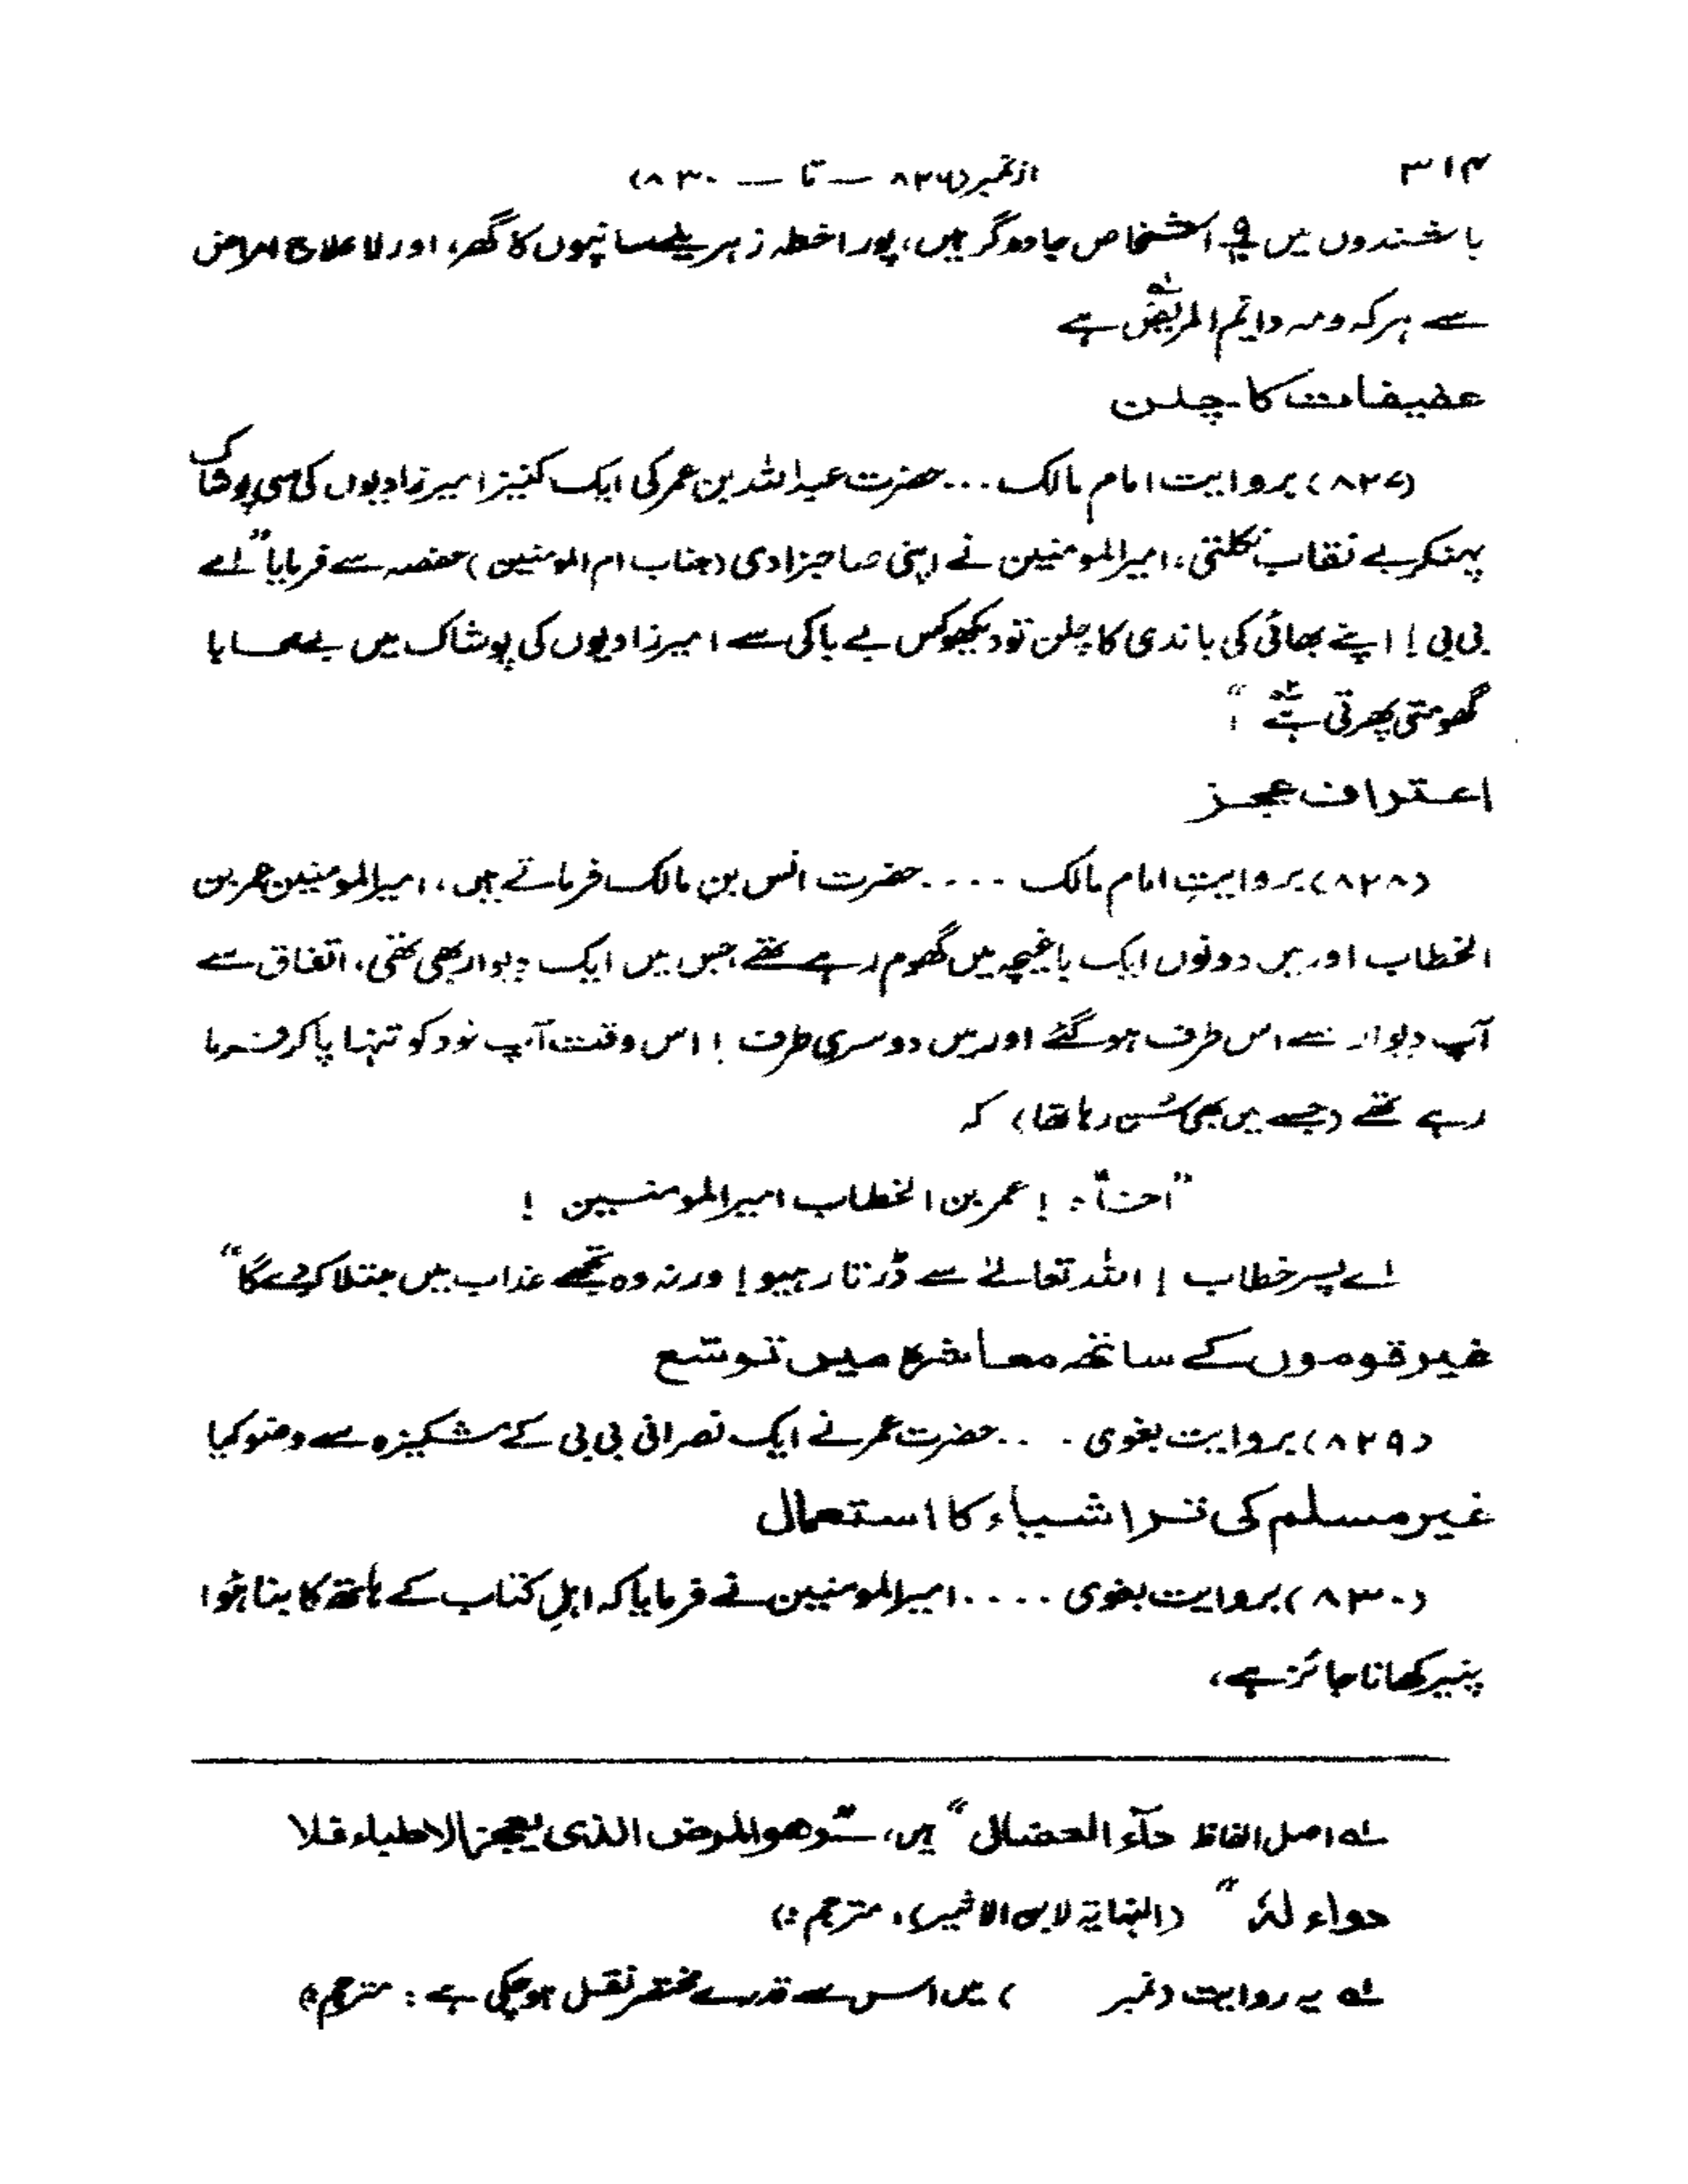 ۳۱۴
از نمبر (۸۲۶ — تا — ۸۳۰)
باشندوں میں ۹/۱۰ اشخاص جادوگر ہیں، پورا خطہ زہریلے سانپوں کا گھر، اور لا علاج امراض
سے ہر کہ ومہ دائم المریض ہے
عفیفات کا چلن
(۸۲۷) بروایت امام مالک ... حضرت عبداللہ بن عمر کی ایک کنیز امیرزادیوں کی سی پوشاک
پہنکر بے نقاب نکلتی، امیرالمومنین نے اپنی صاحبزادی (جناب ام المومنین) حفصہ سے فرمایا "اے
بی بی! اپنے بھائی کی باندی کا چلن تو دیکھو کس بے باکی سے امیرزادیوں کی پوشاک میں بے محابا
گھومتی پھرتی ہے ۲؎"!
اعتراف عجز
(۸۲۸) بروایتِ امام مالک .... حضرت انس بن مالک فرماتے ہیں، امیرالمومنین عمر بن
الخطاب اور میں دونوں ایک باغیچہ میں گھوم رہے تھے جس میں ایک دیوار بھی تھی، اتفاق سے
آپ دیوار سے اس طرف ہوگئے اور میں دوسری طرف! اس وقت آپ خود کو تنہا پا کر فرما
رہے تھے (جسے میں بھی سُن رہا تھا) کہ
! عمر بن الخطاب امیرالمومنین !
اے پسر خطاب! اللہ تعالےٰ سے ڈرتا رہیو! ورنہ وہ تجھے عذاب میں مبتلا کردے گا"
غیر قوموں کے ساتھ معاشرہ میں توسّع
(۸۲۹) بروایت بغوی ... حضرت عمر نے ایک نصرانی بی بی کے مشکیزہ سے وضو کیا
غیر مسلم کی تر اشیاء کا استعمال
(۸۳۰) بروایت بغوی .... امیرالمومنین نے فرمایا کہ اہلِ کتاب کے ہاتھ کا بنا ہُوا
پنیر کھانا جائز ہے،
۱؎ اصل الفاظ داء العضال" ہیں، وھو المرض الذی یعجز الاطباء فلا
دواء لہٗ" (النہایۃ لابن الاثیر)، مترجم:)
۲؎ یہ روایت (نمبر ) میں اس سے قدرے مختصر نقل ہوچکی ہے : مترجم: